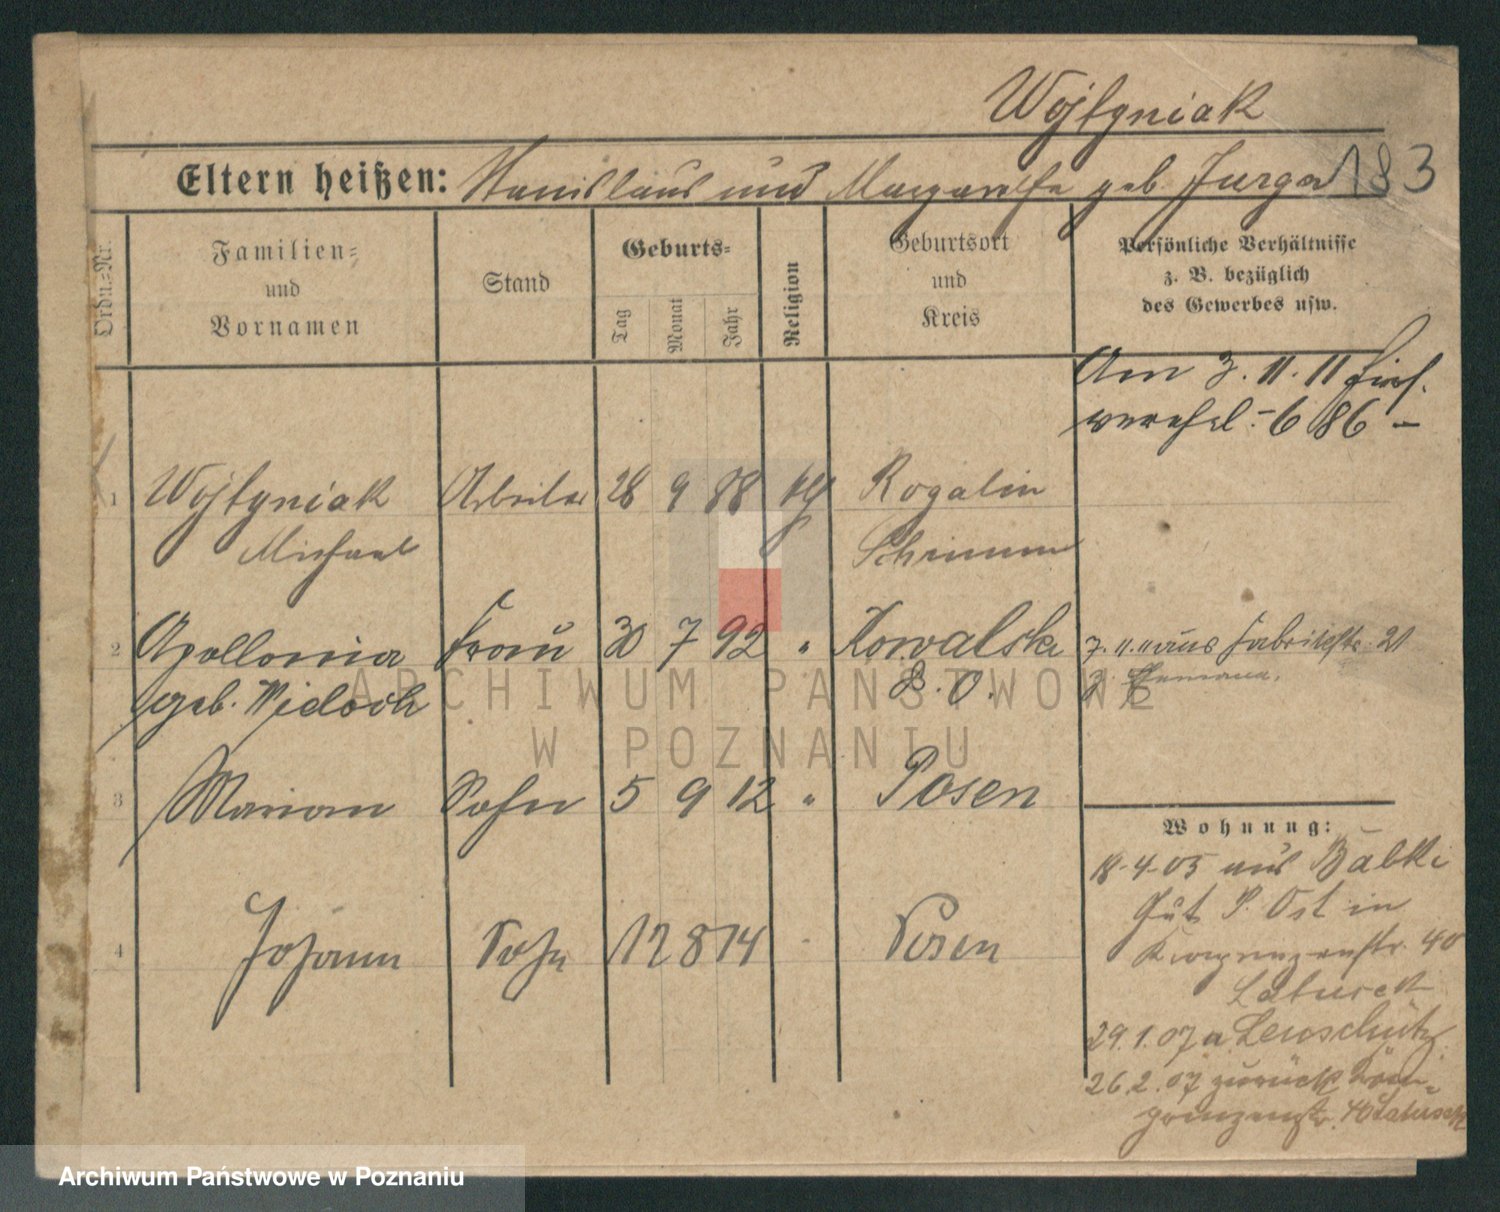 Wojtyniak
Eltern heißen: Stanislaus und Margarethe geb. Jurga 183
Ordn.=Nr.
Familien=
und
Vornamen
Stand
Geburts=
Tag
Monat
Jahr
Religion
Geburtsort
und
Kreis
Persönliche Verhältnisse
z. B. bezüglich
des Gewerbes usw.
Am 3. 11. 11
686 –
1 Wojtyniak Arbeiter 28 9 88 kth Rogalin
Michael Schrimm
2 Apollonia Frau 30 7 92 " Kowalski
geb. Widoch S. O.
3. 11. 11 aus Fabrikstr. 21
3 Marian Sohn 5 9 12 " Posen
4 Johann Sohn 12 8 14 - Posen
Wohnung:
18-4-05 aus Babki
Gut P. Ost in
Kronprinzenstr. 40
Latusek
29.1.07 n. Leuschütz
26.2.07 zurück Kron-
prinzenstr. 40 Latusek
ARCHIWUM PAŃSTWOWE
W POZNANIU
Archiwum Państwowe w Poznaniu